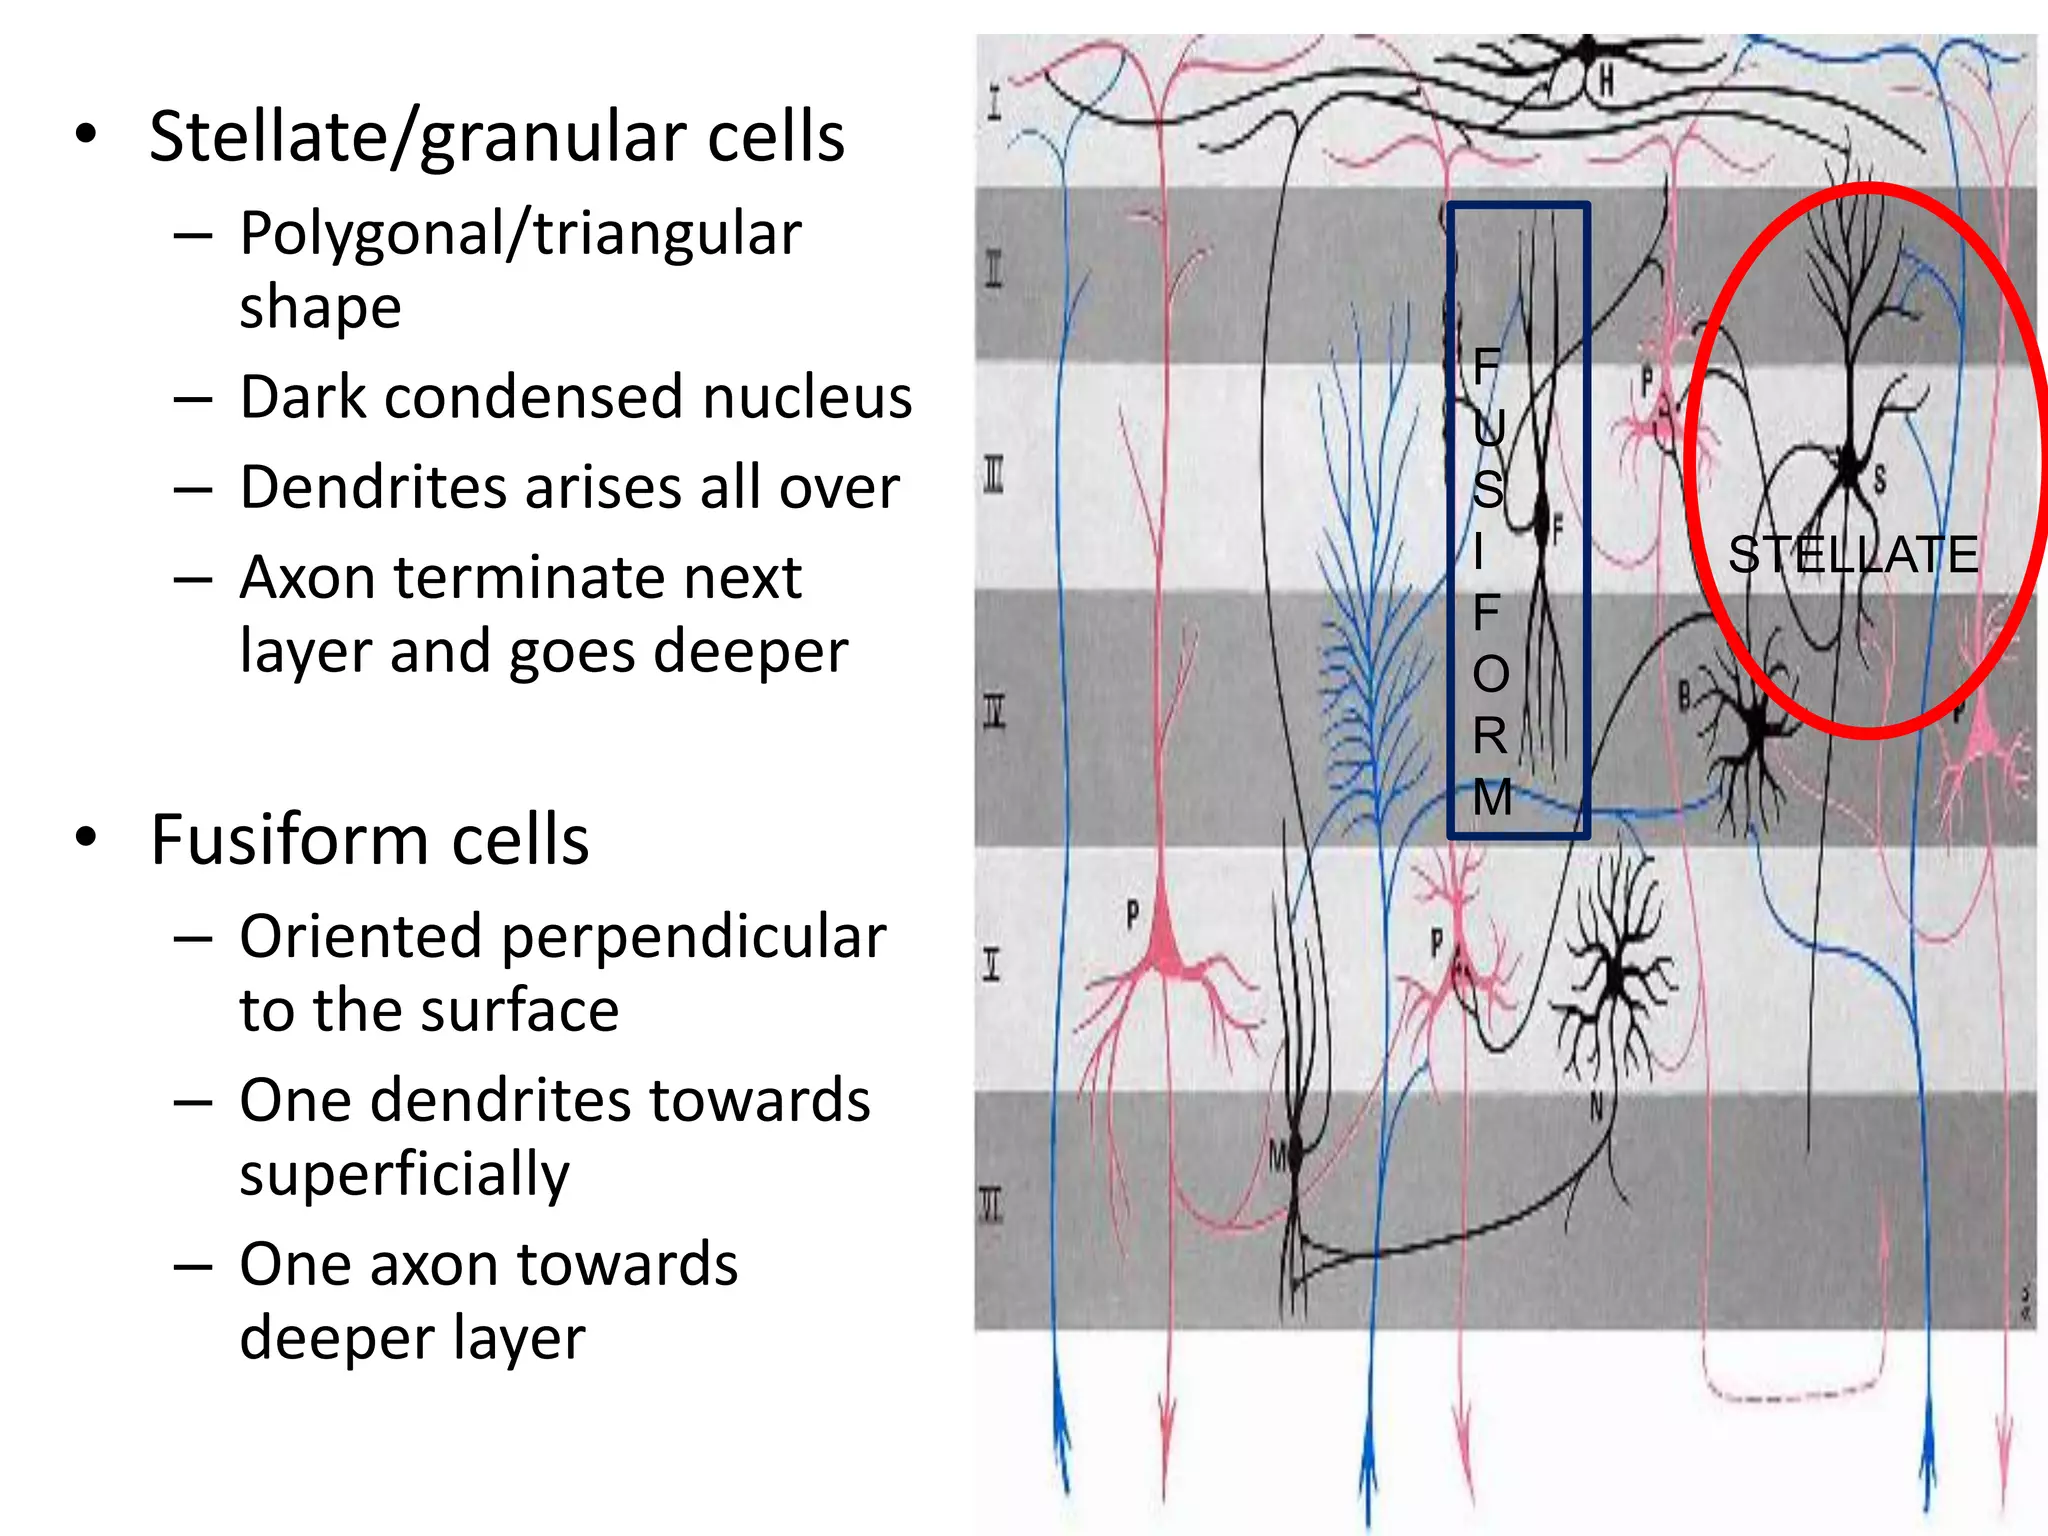 • Stellate/granular cells
– Polygonal/triangular
shape
– Dark condensed nucleus
– Dendrites arises all over
– Axon terminate next
layer and goes deeper
• Fusiform cells
– Oriented perpendicular
to the surface
– One dendrites towards
superficially
– One axon towards
deeper layer
I
H
II
III
P
F
U
S
I
F
O
R
M
F
S
STELLATE
IV
B
P
V
P
P
N
M
VI